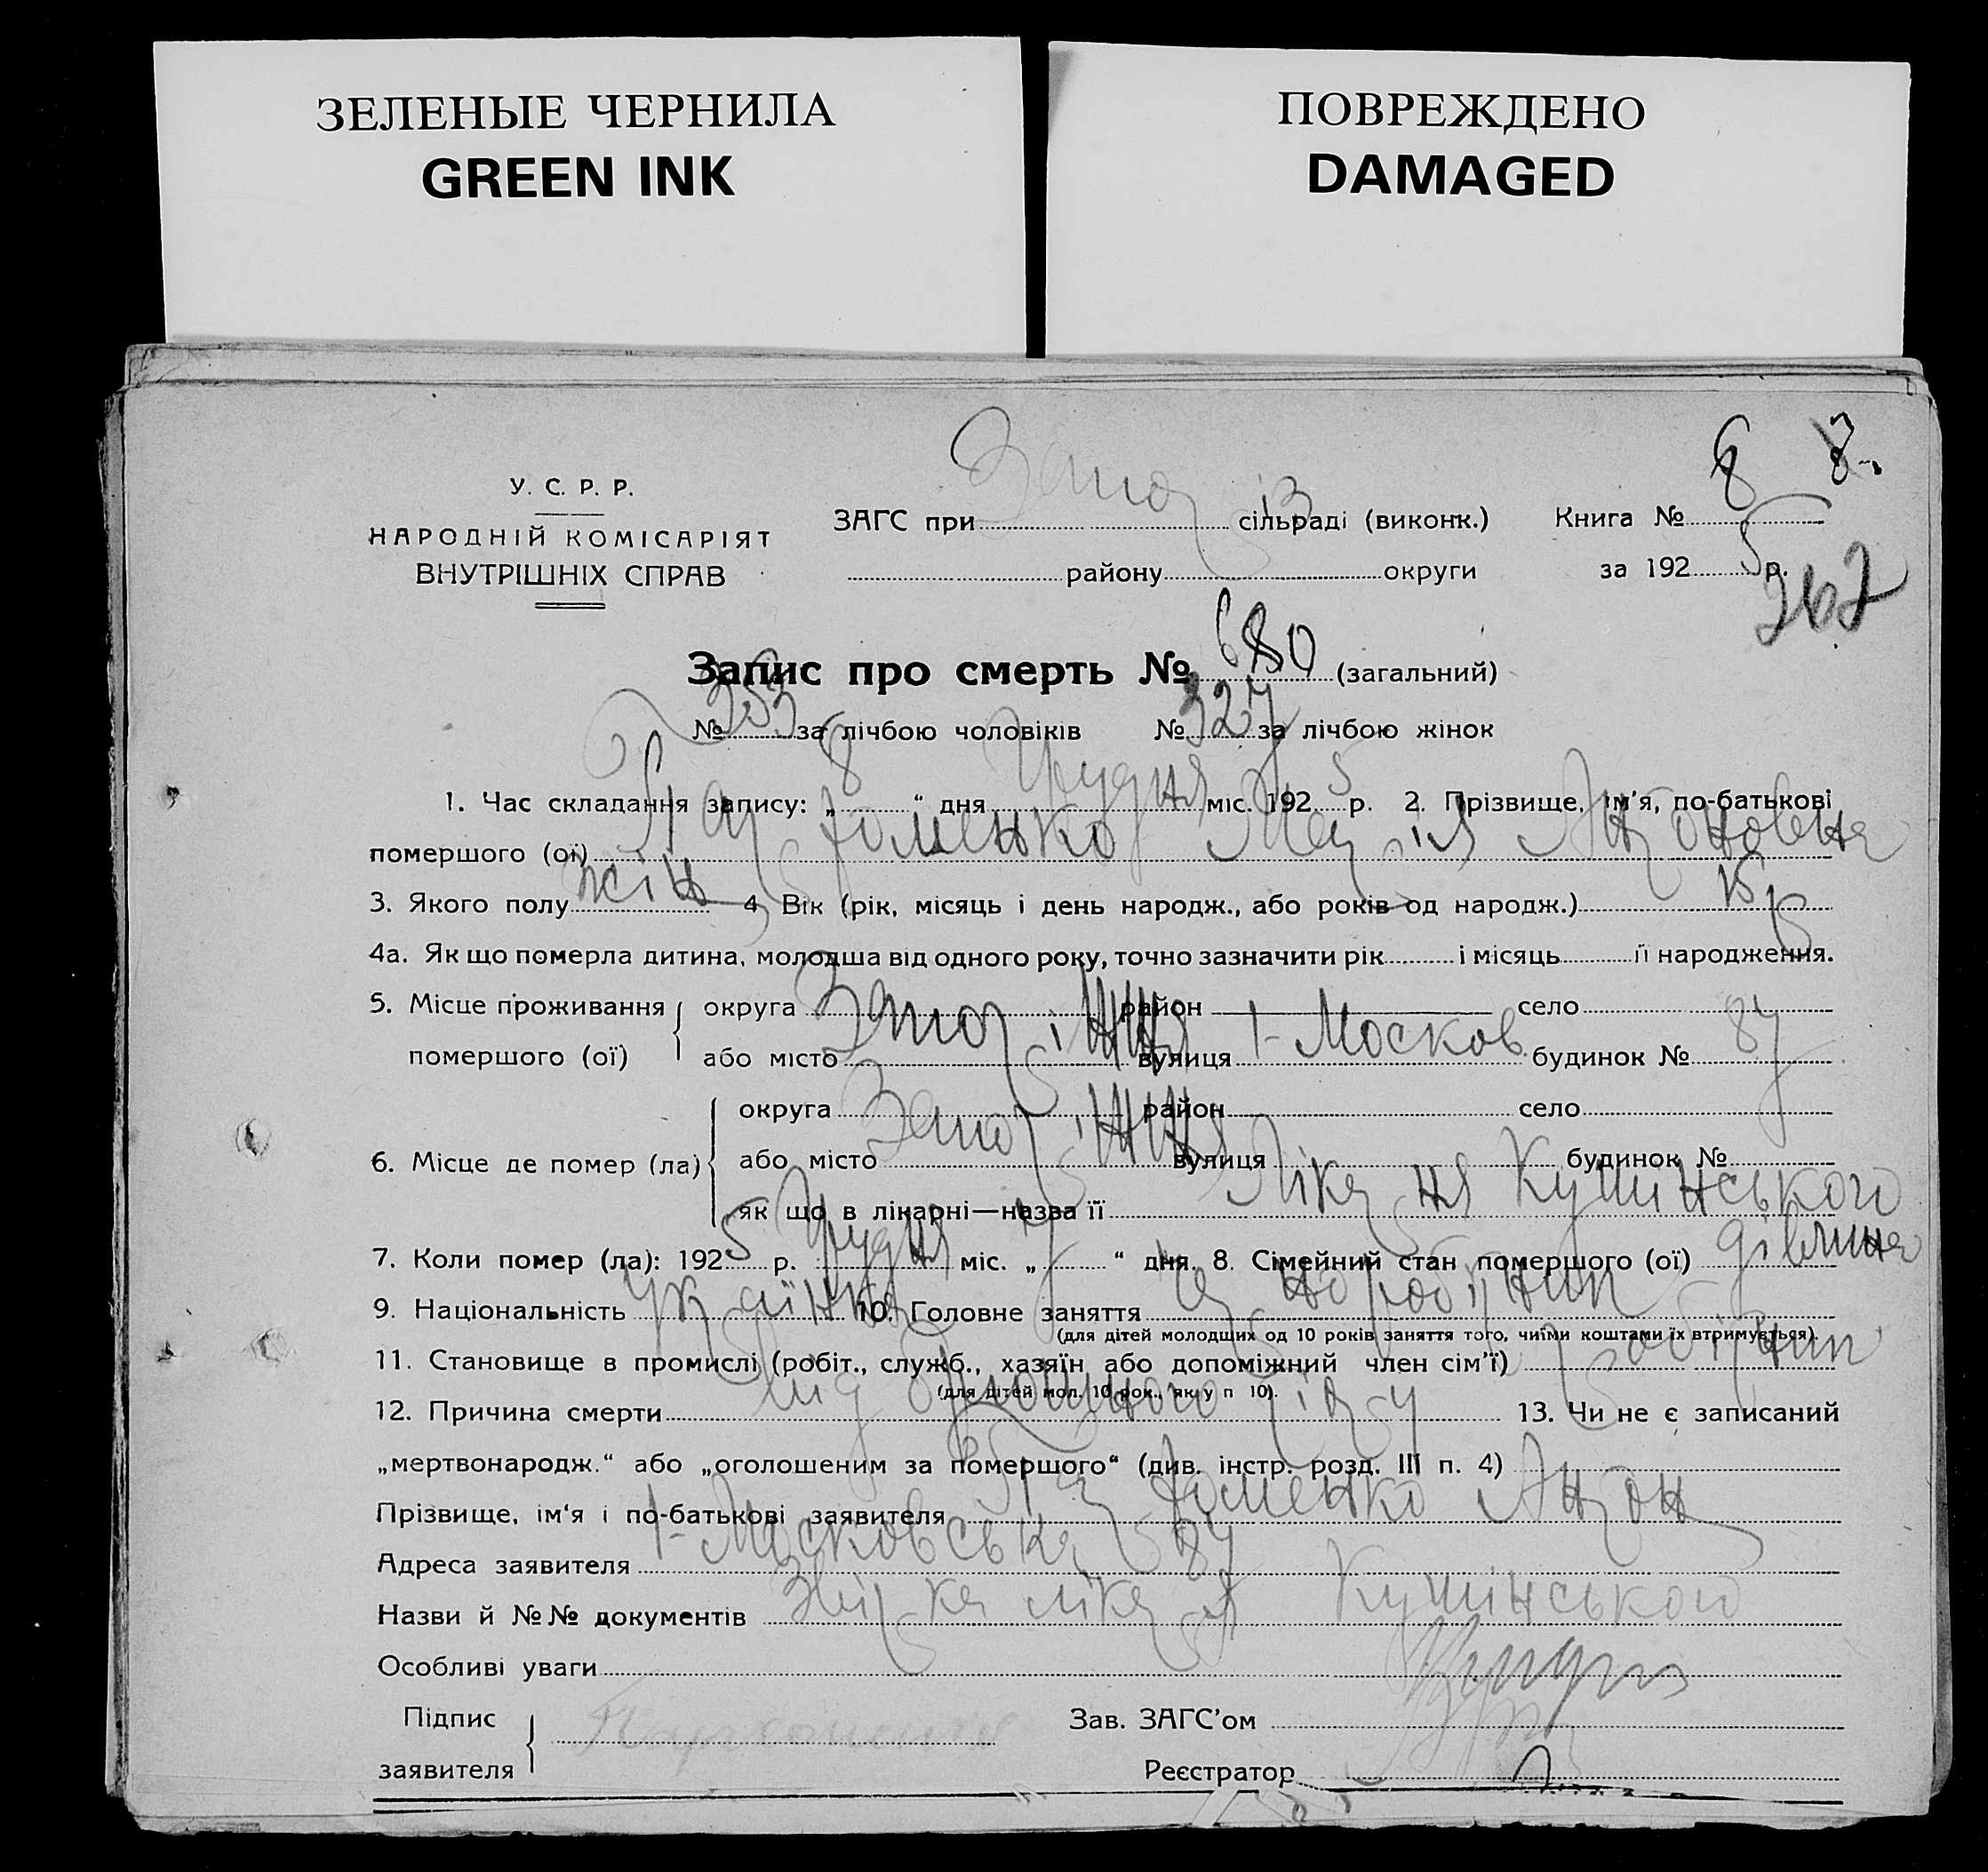 ЗЕЛЕНЫЕ ЧЕРНИЛА
GREEN INK
ПОВРЕЖДЕНО
DAMAGED
У. С. Р. Р.
НАРОДНІЙ КОМІСАРІЯТ
ВНУТРІШНІХ СПРАВ
ЗАГС при сільраді (виконк.)
району округи
Книга № 8
за 192 5 р.
267
Запис про смерть № 680 (загальний)
№ 353 за лічбою чоловіків № 327 за лічбою жінок
1. Час складання запису: „ 8 “ дня Грудня міс. 192 5 р. 2. Прізвище, ім'я, по-батькові
помершого (ої) Пархоменко Марія Антоновна
3. Якого полу жін 4. Вік (рік, місяць і день народж., або років од народж.)
4а. Як що померла дитина, молодша від одного року, точно зазначити рік і місяць її народження.
5. Місце проживання помершого (ої) { округа район село
або місто Запоріжжя вулиця 1-Москов. будинок № 87
6. Місце де помер (ла) { округа район село
або місто Запоріжжя вулиця будинок №
як що в лікарні—назва її Лікарня Кушинського
7. Коли помер (ла): 192 5 р. Грудня міс. „ 7 “ дня. 8. Сімейний стан помершого (ої) дівчина
9. Національність Українка 10. Головне заняття чорноробітник
(для дітей молодших од 10 років заняття того, чиїми коштами їх втримується).
11. Становище в промислі (робіт., служб., хазяїн або допоміжний член сім'ї) робітник
(для дітей мол. 10 рок., як у п 10).
12. Причина смерти 13. Чи не є записаний
„мертвонародж.“ або „оголошеним за помершого“ (див. інстр. розд. III п. 4)
Прізвище, ім'я і по-батькові заявителя Пархоменко Антон
Адреса заявителя 1-Московська 87
Назви й №№ документів Кушинського
Особливі уваги
Підпис заявителя {
Зав. ЗАГС'ом
Реєстратор